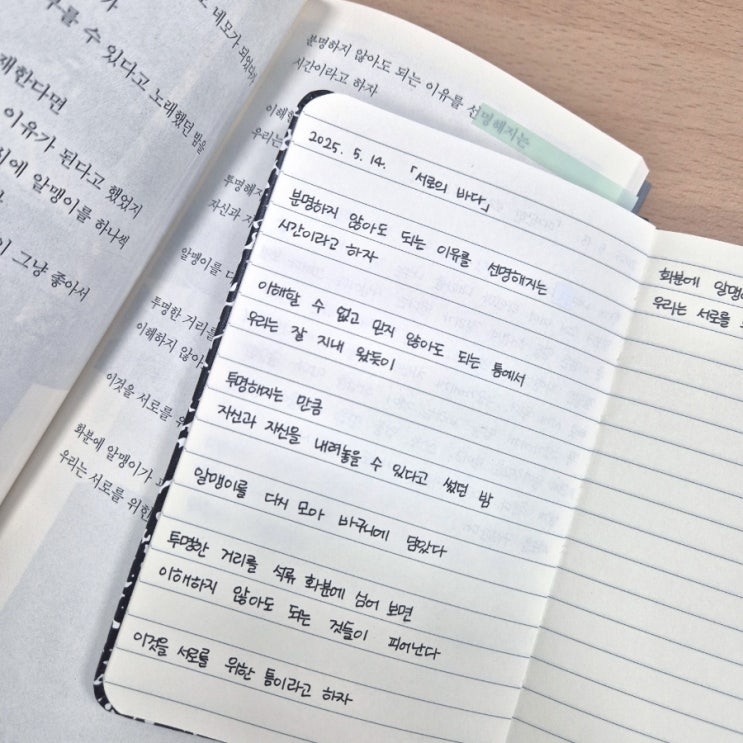 네모가 되었다
수 있다고 노래했던 밤을
재한다면
이유가 된다고 했었지
알맹이를 하나씩
그냥 좋아서
분명하지 않아도 되는 이유를 선명해지는
시간이라고 하자
이해할
우리는
투명해지
자신과
알맹이를
투명한 거리를
이해하지 않아
이것을 서로를
화분에 알맹이가
우리는 서로를 위한
2025. 5. 14. 「서로의 바다」
분명하지 않아도 되는 이유를 선명해지는
시간이라고 하자
이해할 수 없고 믿지 않아도 되는 틈에서
우리는 잘 지내 왔듯이
투명해지는 만큼
자신과 자신을 내려놓을 수 있다고 썼던 밤
알맹이를 다시 모아 바구니에 담았다
투명한 거리를 석류 화분에 심어 보면
이해하지 않아도 되는 것들이 피어난다
이것을 서로를 위한 틈이라고 하자
화분에
우리는 서로를